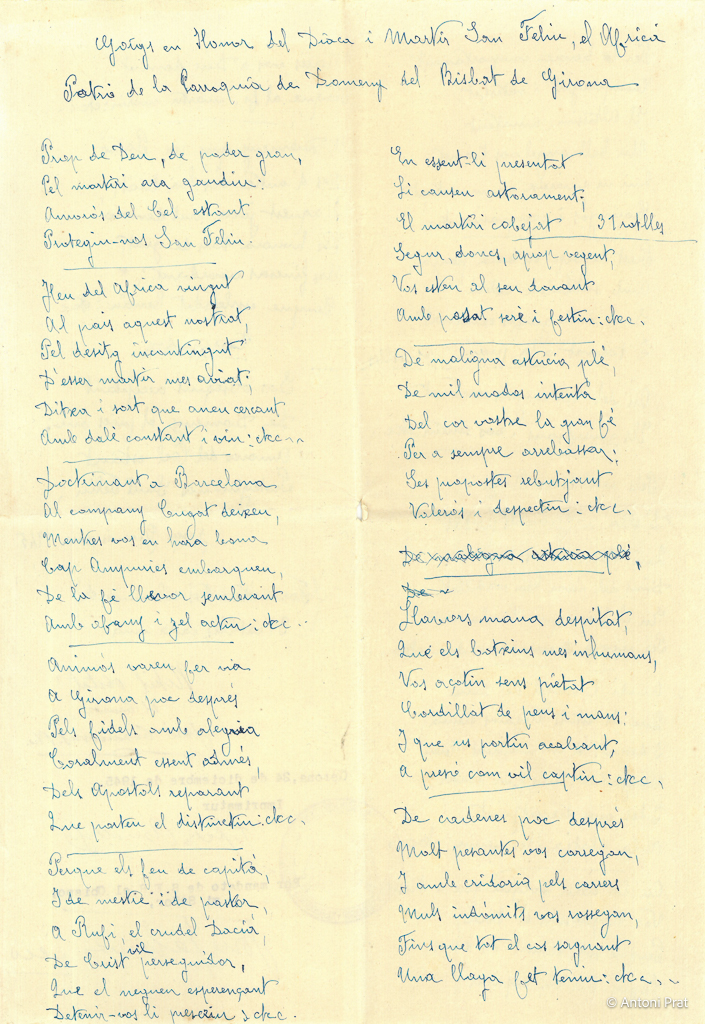 Goigs en Honor del Diaca i Martir San Feliu, el Africá
Patró de la Parroquia de Domeny del Bisbat de Girona
Prop de Deu, de poder gran,
Pel martiri ara gaudiu:
Amorós del Cel estant
Protegiu-nos San Feliu.
Heu del Africa vingut
Al pais aquest nostrat,
Pel desitg incontingut
D'esser martir mes aviat;
Ditxa i sort que aneu cercant
Amb dalè constant i viu: &c..
Doctrinant a Barcelona
Al company Cugat deixeu,
Mentres vos en hora bona
Cap Ampuries embarqueu,
De la fé llavor sembrant
Amb afany i zel actiu: &c..
Animós vareu fer via
A Girona poc després
Pels fidels amb alegria
Coralment essent admés,
Dels Apostols reparant
Que porteu el distinctiu: &c.
Perque els feu de capitá,
I de mestre i de pastor,
A Rufí, el crudel Daciá,
De Crist vil perseguidor,
Que el negueu esperençant
Detenir-vos li prescriu: &c.
En essent-li presentat
Li causeu astorament;
El martiri cobejat 31 ratlles
Segur, doncs, aprop vegent,
Vos esteu al seu davant
Amb posat serè i festiu: &c.
De maligna astucia plé,
De mil modos intentá
Del cor vostre la gran fé
Per a sempre arrebassar:
Ses propostes rebutjant
Valerós i despectiu: &c.
De maligna astucia plé,
De
Llavors mana despitat,
Qué els botxins mes inhumans,
Vos açotin sens pietat
Cordillat de peus i mans:
I que us portin acabant,
A presó com vil captiu: &c.
De cadenes poc després
Molt pesantes vos carregan,
I amb cridoria pels carrers
Muls indómits vos rossegan,
Fins que tot el cos sagnant
Una llaga fet teniu: &c..
© Antoni Prat